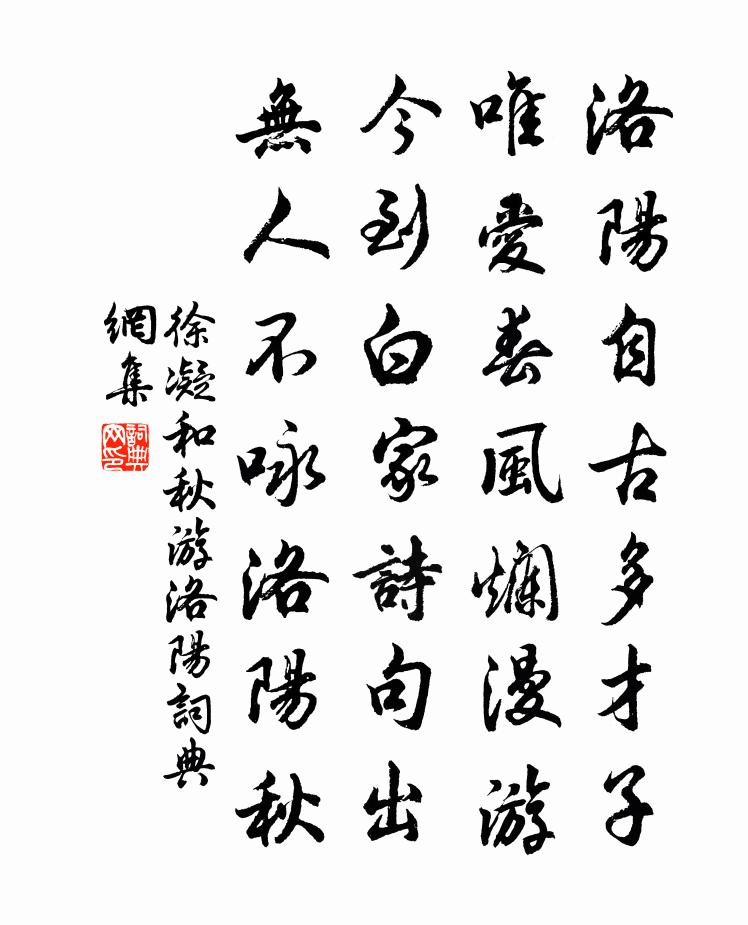 洛陽自古多才子
唯愛春風爛漫游
今到白家詩句出
無人不咏洛陽秋
徐凝和秋游洛陽詞典
網集
詞典
网印